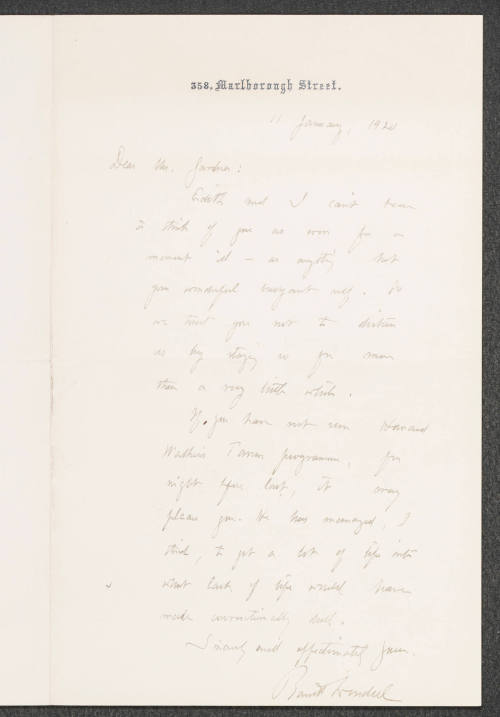 358, Marlborough Street.
11 January, 1920
Dear Mrs. Gardner:
Edith and I can't bear
to think of you as even for a
moment ill – as anything but
your wonderful buoyant self. So
we trust you not to distress
us by staying so for more
than a very little while.
If you have not seen Howard
Walker's Tavern programme, for
night before last, it may
please you. He has managed, I
think, to get a lot of life into
what lack of life would have
made conventionally dull.
Sincerely and affectionately yours.
Barrett Wendell